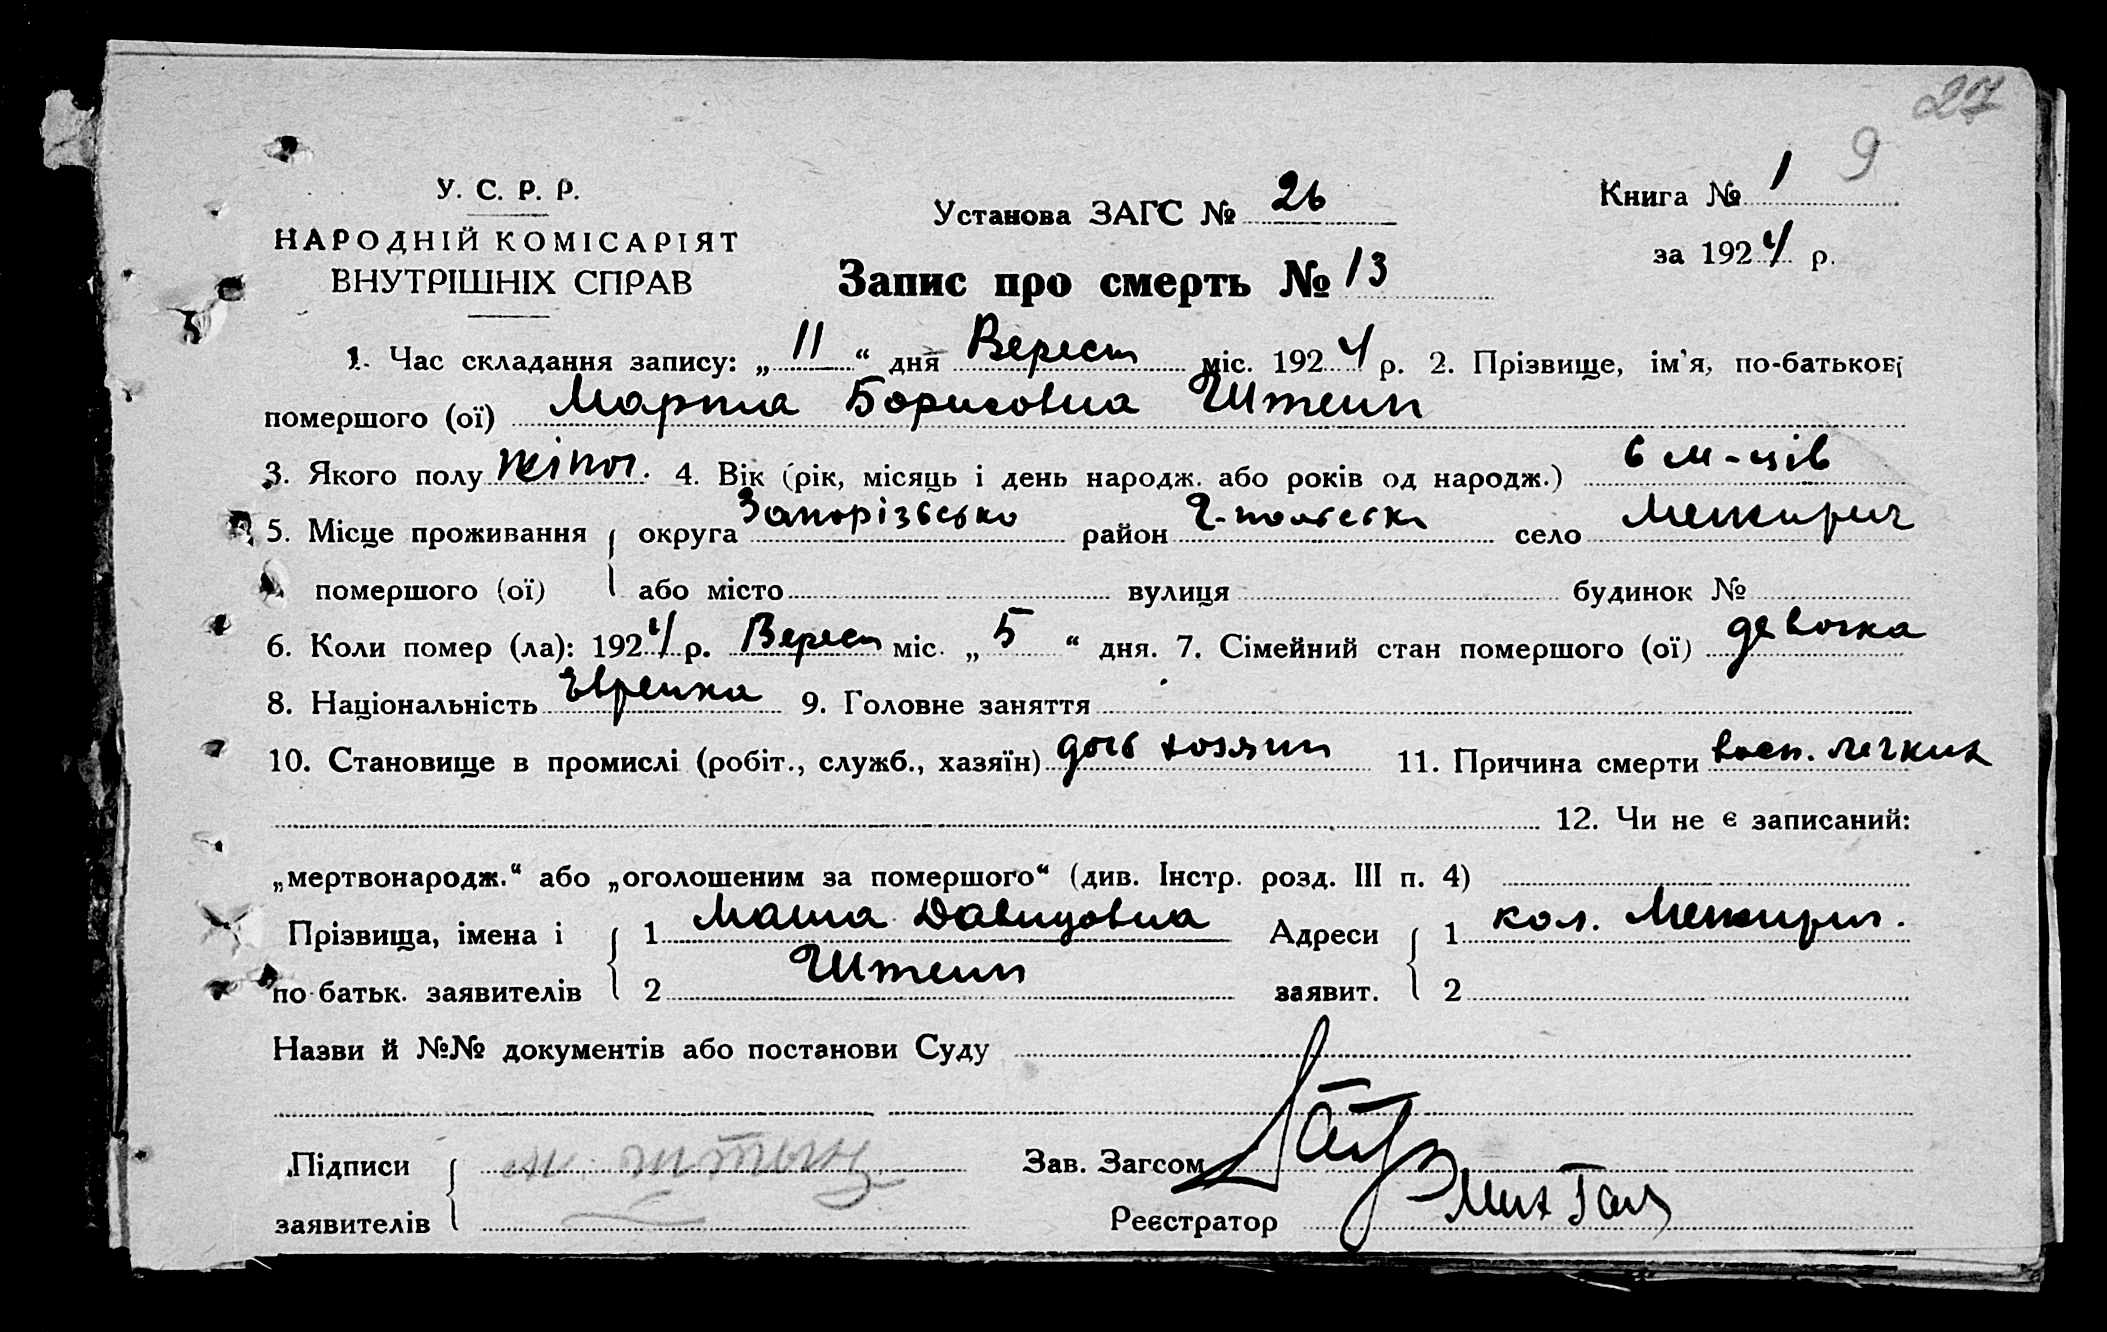 27
9
У. С. Р. Р.
НАРОДНІЙ КОМІСАРІЯТ
ВНУТРІШНІХ СПРАВ
Установа ЗАГС № 26
Книга № 1
за 1924 р.
Запис про смерть № 13
1. Час складання запису: „11“ дня Верест міс. 1924 р. 2. Прізвище, ім'я, по-батькові
помершого (ої) Марпла Борисовна Штейн
3. Якого полу жіноч. 4. Вік (рік, місяць і день народж. або років од народж.) 6 м-ців
5. Місце проживання округа Запорізьсько район село Межирич
помершого (ої) або місто вулиця будинок №
6. Коли помер (ла): 1924 р. Верест міс. „5“ дня. 7. Сімейний стан помершого (ої) девочка
8. Національність Еврейка 9. Головне заняття
10. Становище в промислі (робіт., служб., хазяїн) дочь хозяин 11. Причина смерти восп. легких
12. Чи не є записаний:
„мертвонародж.“ або „оголошеним за помершого“ (див. Інстр. розд. III п. 4)
Прізвища, імена і 1 Маша Давидовна Адреси 1 кол. Межирич.
по-батьк. заявителів 2 Штейн заявит. 2
Назви й №№ документів або постанови Суду
Підписи Зав. Загсом
заявителів Реєстратор